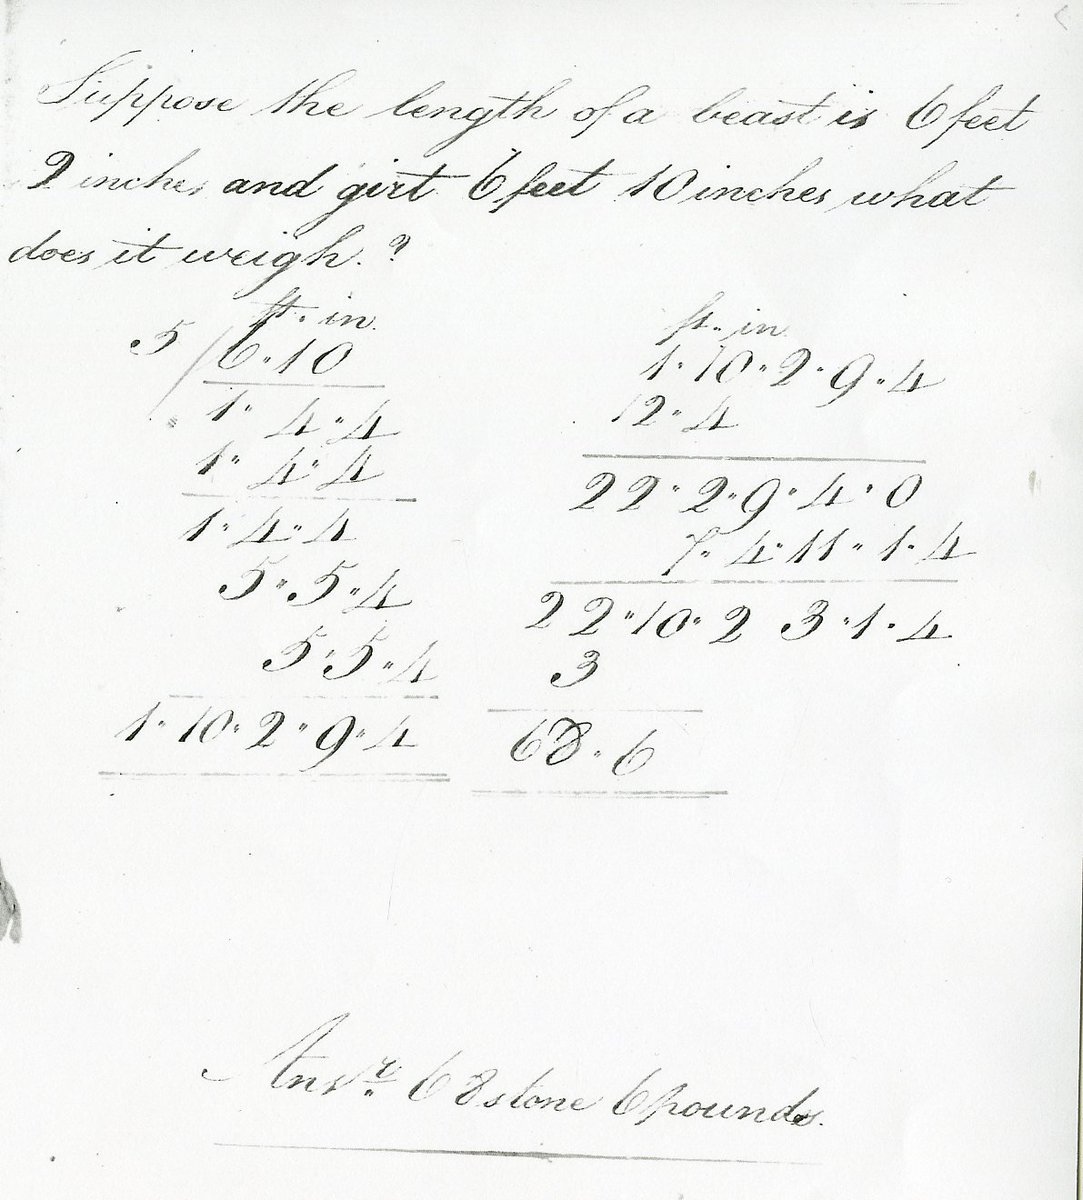 Suppose the length of a beast is 6 feet
2 inches and girt 6 feet 10 inches what
does it weigh.?
ft. in.
5 / 6 " 10
1 " 4 " 4
1 " 4 " 4
1 " 4 " 4
5 " 5 " 4
5 " 5 " 4
1 " 10 " 2 " 9 " 4
ft. in.
1 " 10 " 2 " 9 " 4
12 " 4
22 " 2 " 9 " 4 " 0
7 " 4 " 11 " 1 " 4
22 " 10 " 2 3 " 1 " 4
3
68 " 6
Ansr. 68 stone 6 pounds.